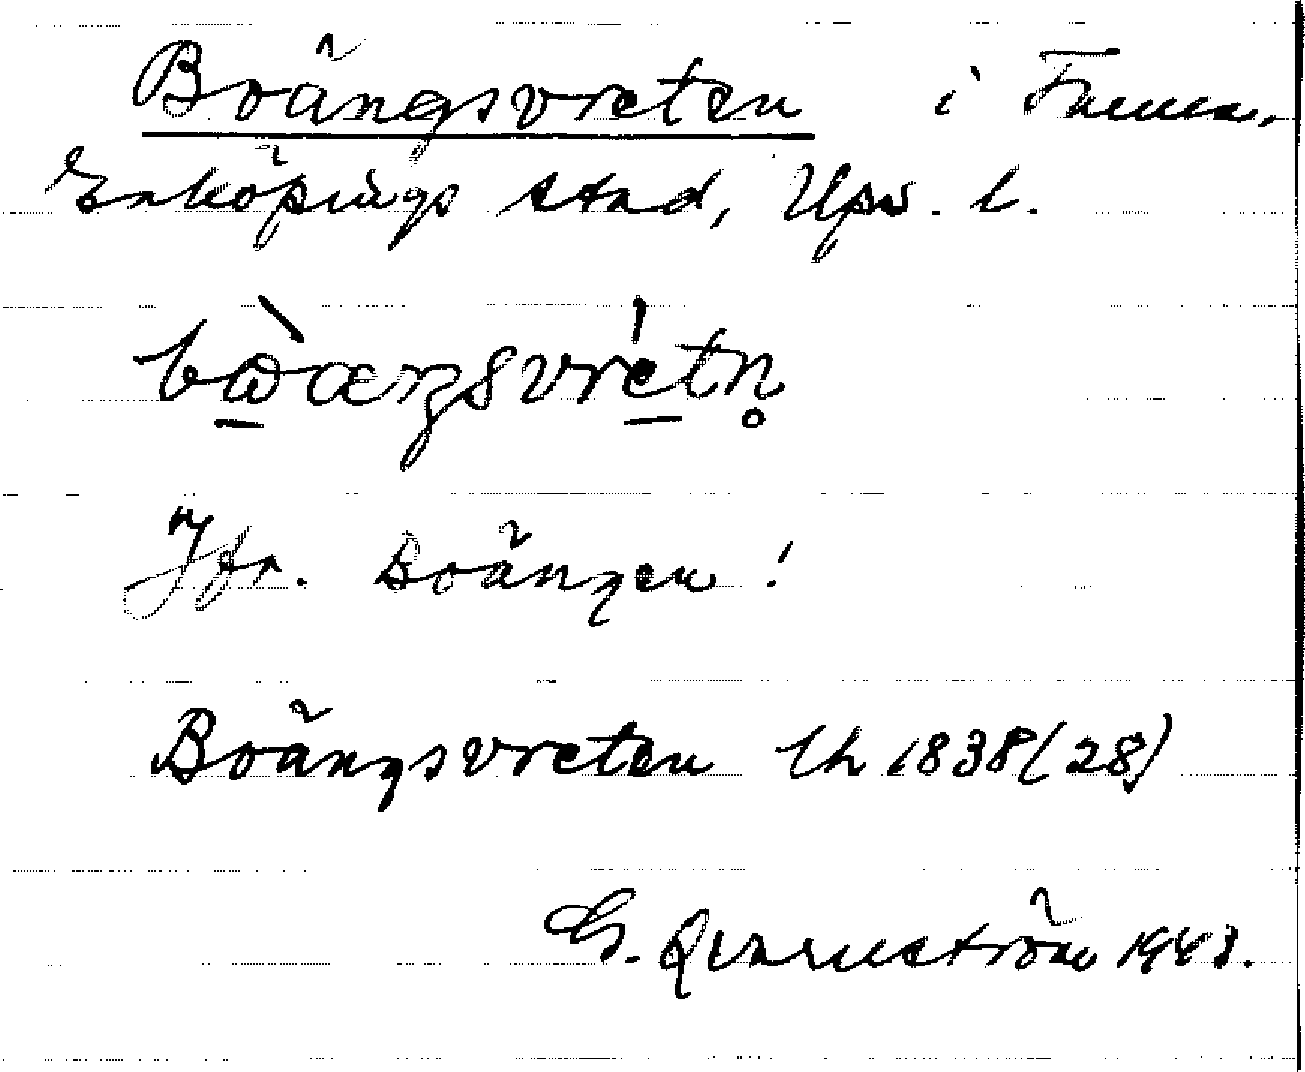 Boängsvreten i Fanna,
Enköpings stad, Ups. l.
bὼ̠æŋsvré̠tn̥
Jfr. Boängen!
Boängsvreten Lh 1838 (28)
G. Qvarnström 1943.